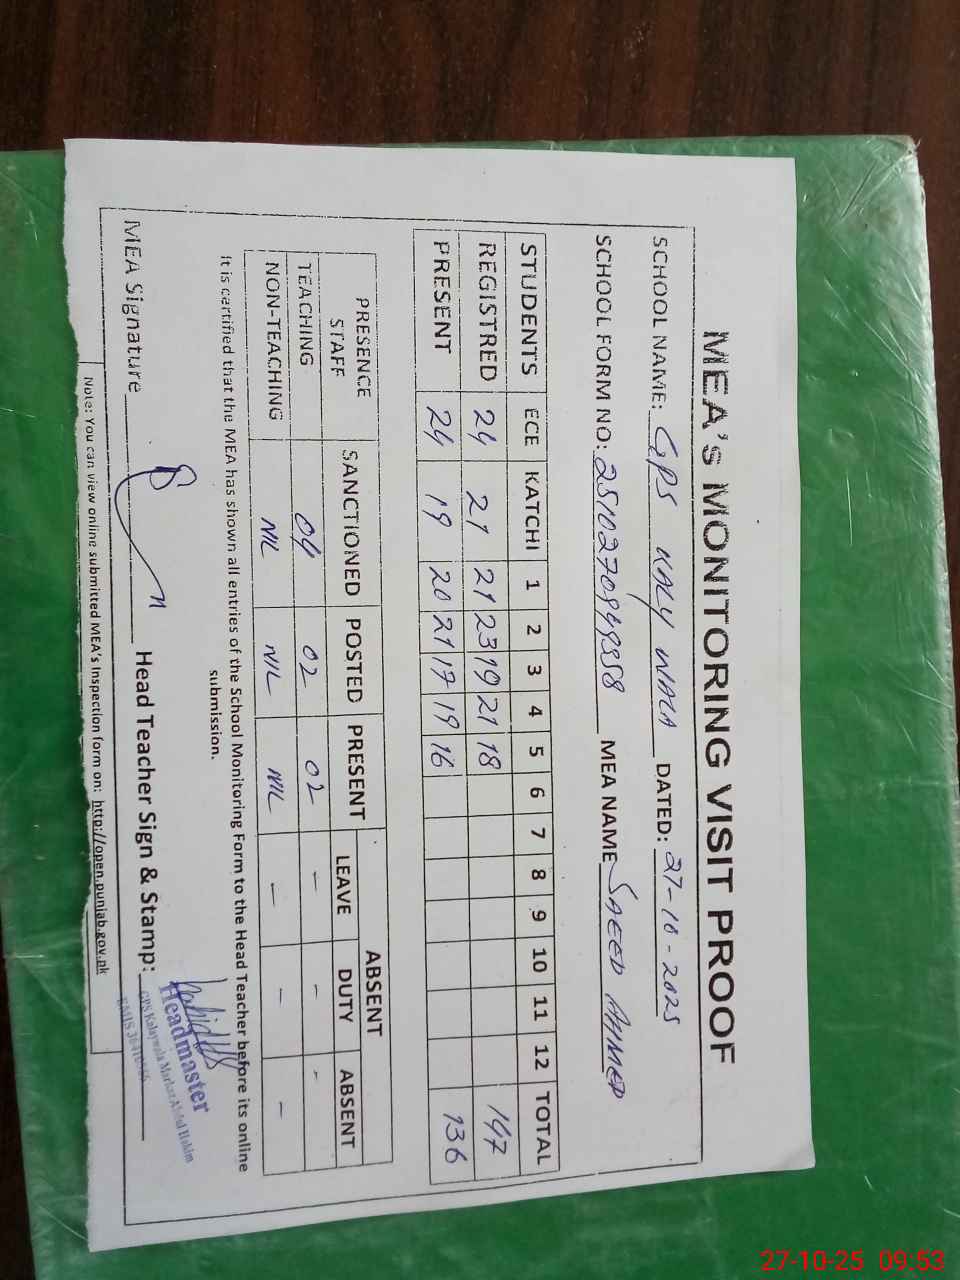 MEA's MONITORING VISIT PROOF
SCHOOL NAME: GPS KALY WALA DATED: 27-10-2025
SCHOOL FORM NO: MEA NAME SAEED AHMED
STUDENTS ECE KATCHI 1 2 3 4 5 6 7 8 9 10 11 12 TOTAL
REGISTRED 24 21 21 23 19 21 18 147
PRESENT 24 19 20 21 17 19 16 136
PRESENCE ABSENT
STAFF SANCTIONED POSTED PRESENT LEAVE DUTY ABSENT
TEACHING 04 02 02 - - -
NON-TEACHING NIL NIL NIL - - -
It is certified that the MEA has shown all entries of the School Monitoring Form to the Head Teacher before its online
submission.
MEA Signature Head Teacher Sign & Stamp:
Headmaster
GPS Kalaywala Markaz Abdul Hakim
EMIS
Note: You can view online submitted MEA's Inspection form on: http://open.punjab.gov.pk
27-10-25 09:53